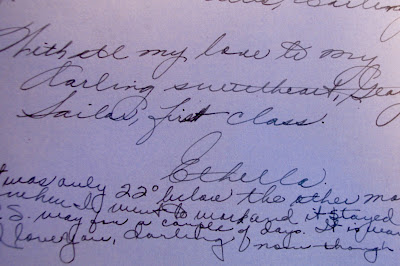 With all my love to my
Darling sweetheart, Geo
Sailor, first class.
Ethella
t was only 22° below the other mo
when I went to work and it stayed
.S. way for a couple of days. It is wa
I love you, darling now though